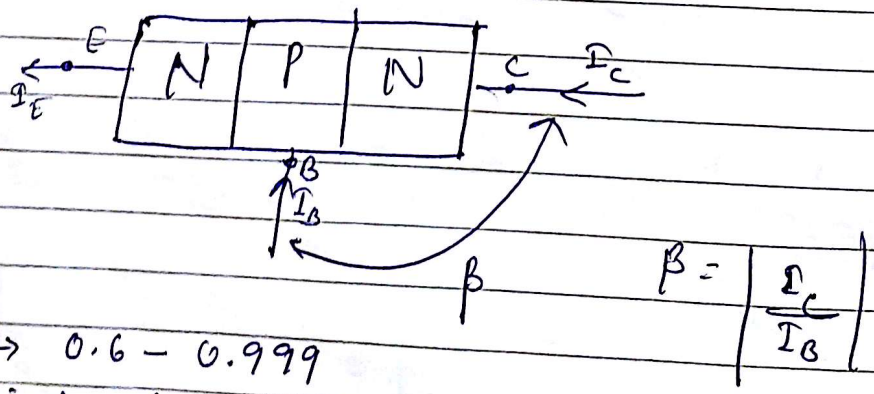 E N P N C I_C
I_E
B
I_B
β β = | I_C / I_B |
→ 0.6 - 0.999